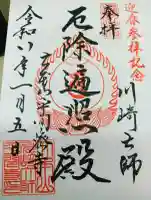 迎春参拝記念
川崎大師
奉拝
厄除遍照殿
令和八年一月五日